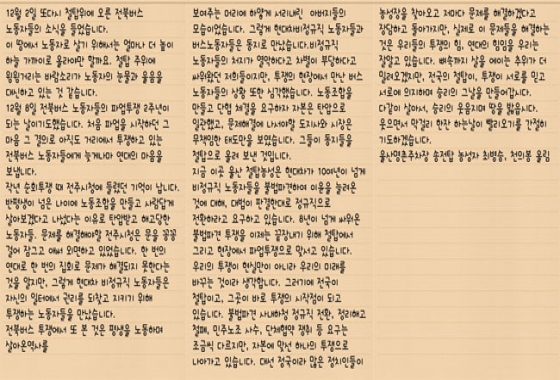 12월 2일 또다시 철탑위에 오른 전북버스
노동자들의 소식을 들었습니다.
이 땅에서 노동자로 살기 위해서는 얼마나 더 높이
하늘 가까이로 올라야만 할까요. 철탑 주위에
윙윙거리는 바람소리가 노동자의 눈물과 울음을
대신하고 있는 것 같습니다.
12월 8일 전북버스 노동자들의 파업투쟁 2주년이
되는 날이기도했습니다. 처음 파업을 시작하던 그
마음 그 결의로 아직도 거리에서 투쟁하고 있는
전북버스 노동자들에게 늦게나마 연대의 마음을
보냅니다.
작년 순회투쟁 때 전주시청에 들렸던 기억이 납니다.
반평생이 넘은 나이에 노동조합을 만들고 사람답게
살아보겠다고 나섰다는 이유로 탄압받고 해고당한
노동자들. 문제를 해결해야할 전주시청은 문을 꽁꽁
걸어 잠그고 애써 외면하고 있었습니다. 한 번의
연대로 한 번의 집회로 문제가 해결되지 못한다는
것을 알지만, 그렇게 현대차 비정규직 노동자들은
자신의 일터에서 권리를 되찾고 지키기 위해
투쟁하는 노동자를 만났습니다.
전북버스 투쟁에서 또 본 것은 평생을 노동하며
살아온역사를
보여주는 머리에 하얗게 서리내린 아버지들의
모습이었습니다. 그렇게 현대차비정규직 노동자들과
버스노동자들은 동지로 만났습니다.비정규직
노동자들의 처지가 열악하다고 차별이 부당하다고
싸워왔던 저희들이지만, 투쟁의 현장에서 만난 버스
노동자들의 상황 또한 심각했습니다. 노동조합을
만들고 단협 체결을 요구하자 자본은 탄압으로
일관했고, 문제해결에 나서야할 도지사와 시장은
무책임한 태도만을 보였습니다. 그들이 동지들을
철탑으로 올려 보낸 것입니다.
지금 이곳 울산 철탑농성은 현대차가 10여년이 넘게
비정규직 노동자들을 불법파견하여 이윤을 늘려온
것에 대해, 대법이 판결한대로 정규직으로
전환하라고 요구하고 있습니다. 8년이 넘게 싸워온
불법파견 투쟁을 이제는 끝장내기 위해 철탑에서
그리고 현장에서 파업투쟁으로 맞서고 있습니다.
우리의 투쟁이 현실만이 아니라 우리의 미래를
바꾸는 것이라 생각합니다. 그러기에 전국이
철탑이고, 그곳이 바로 투쟁의 시작점이 되고
있습니다. 불법파견 사내하청 정규직 전환, 정리해고
철폐, 민주노조 사수, 단체협약 쟁취 등 요구는
조금씩 다르지만, 자본에 맞선 하나의 투쟁으로
나아가고 있습니다. 대선 정국이라 많은 정치인들이
농성장을 찾아오고 저마다 문제를 해결하겠다고
장담하고 돌아가지만, 실제로 이 문제들을 해결하는
것은 우리들의 투쟁의 힘, 연대의 힘임을 우리는
잘알고 있습니다. 뼈속까지 삶을 에이는 추위가 더
밀려오겠지만, 전국의 철탑이, 투쟁이 서로를 믿고
서로에 의지하여 승리의 그날을 만들어갑시다.
다같이 살아서, 승리의 웃음지며 땅을 밟읍시다.
웃으면서 막걸리 한잔 하는날이 빨리오기를 간절히
기도하겠습니다.
울산명촌주차장 송전탑 농성자 최병승, 천의봉 올림